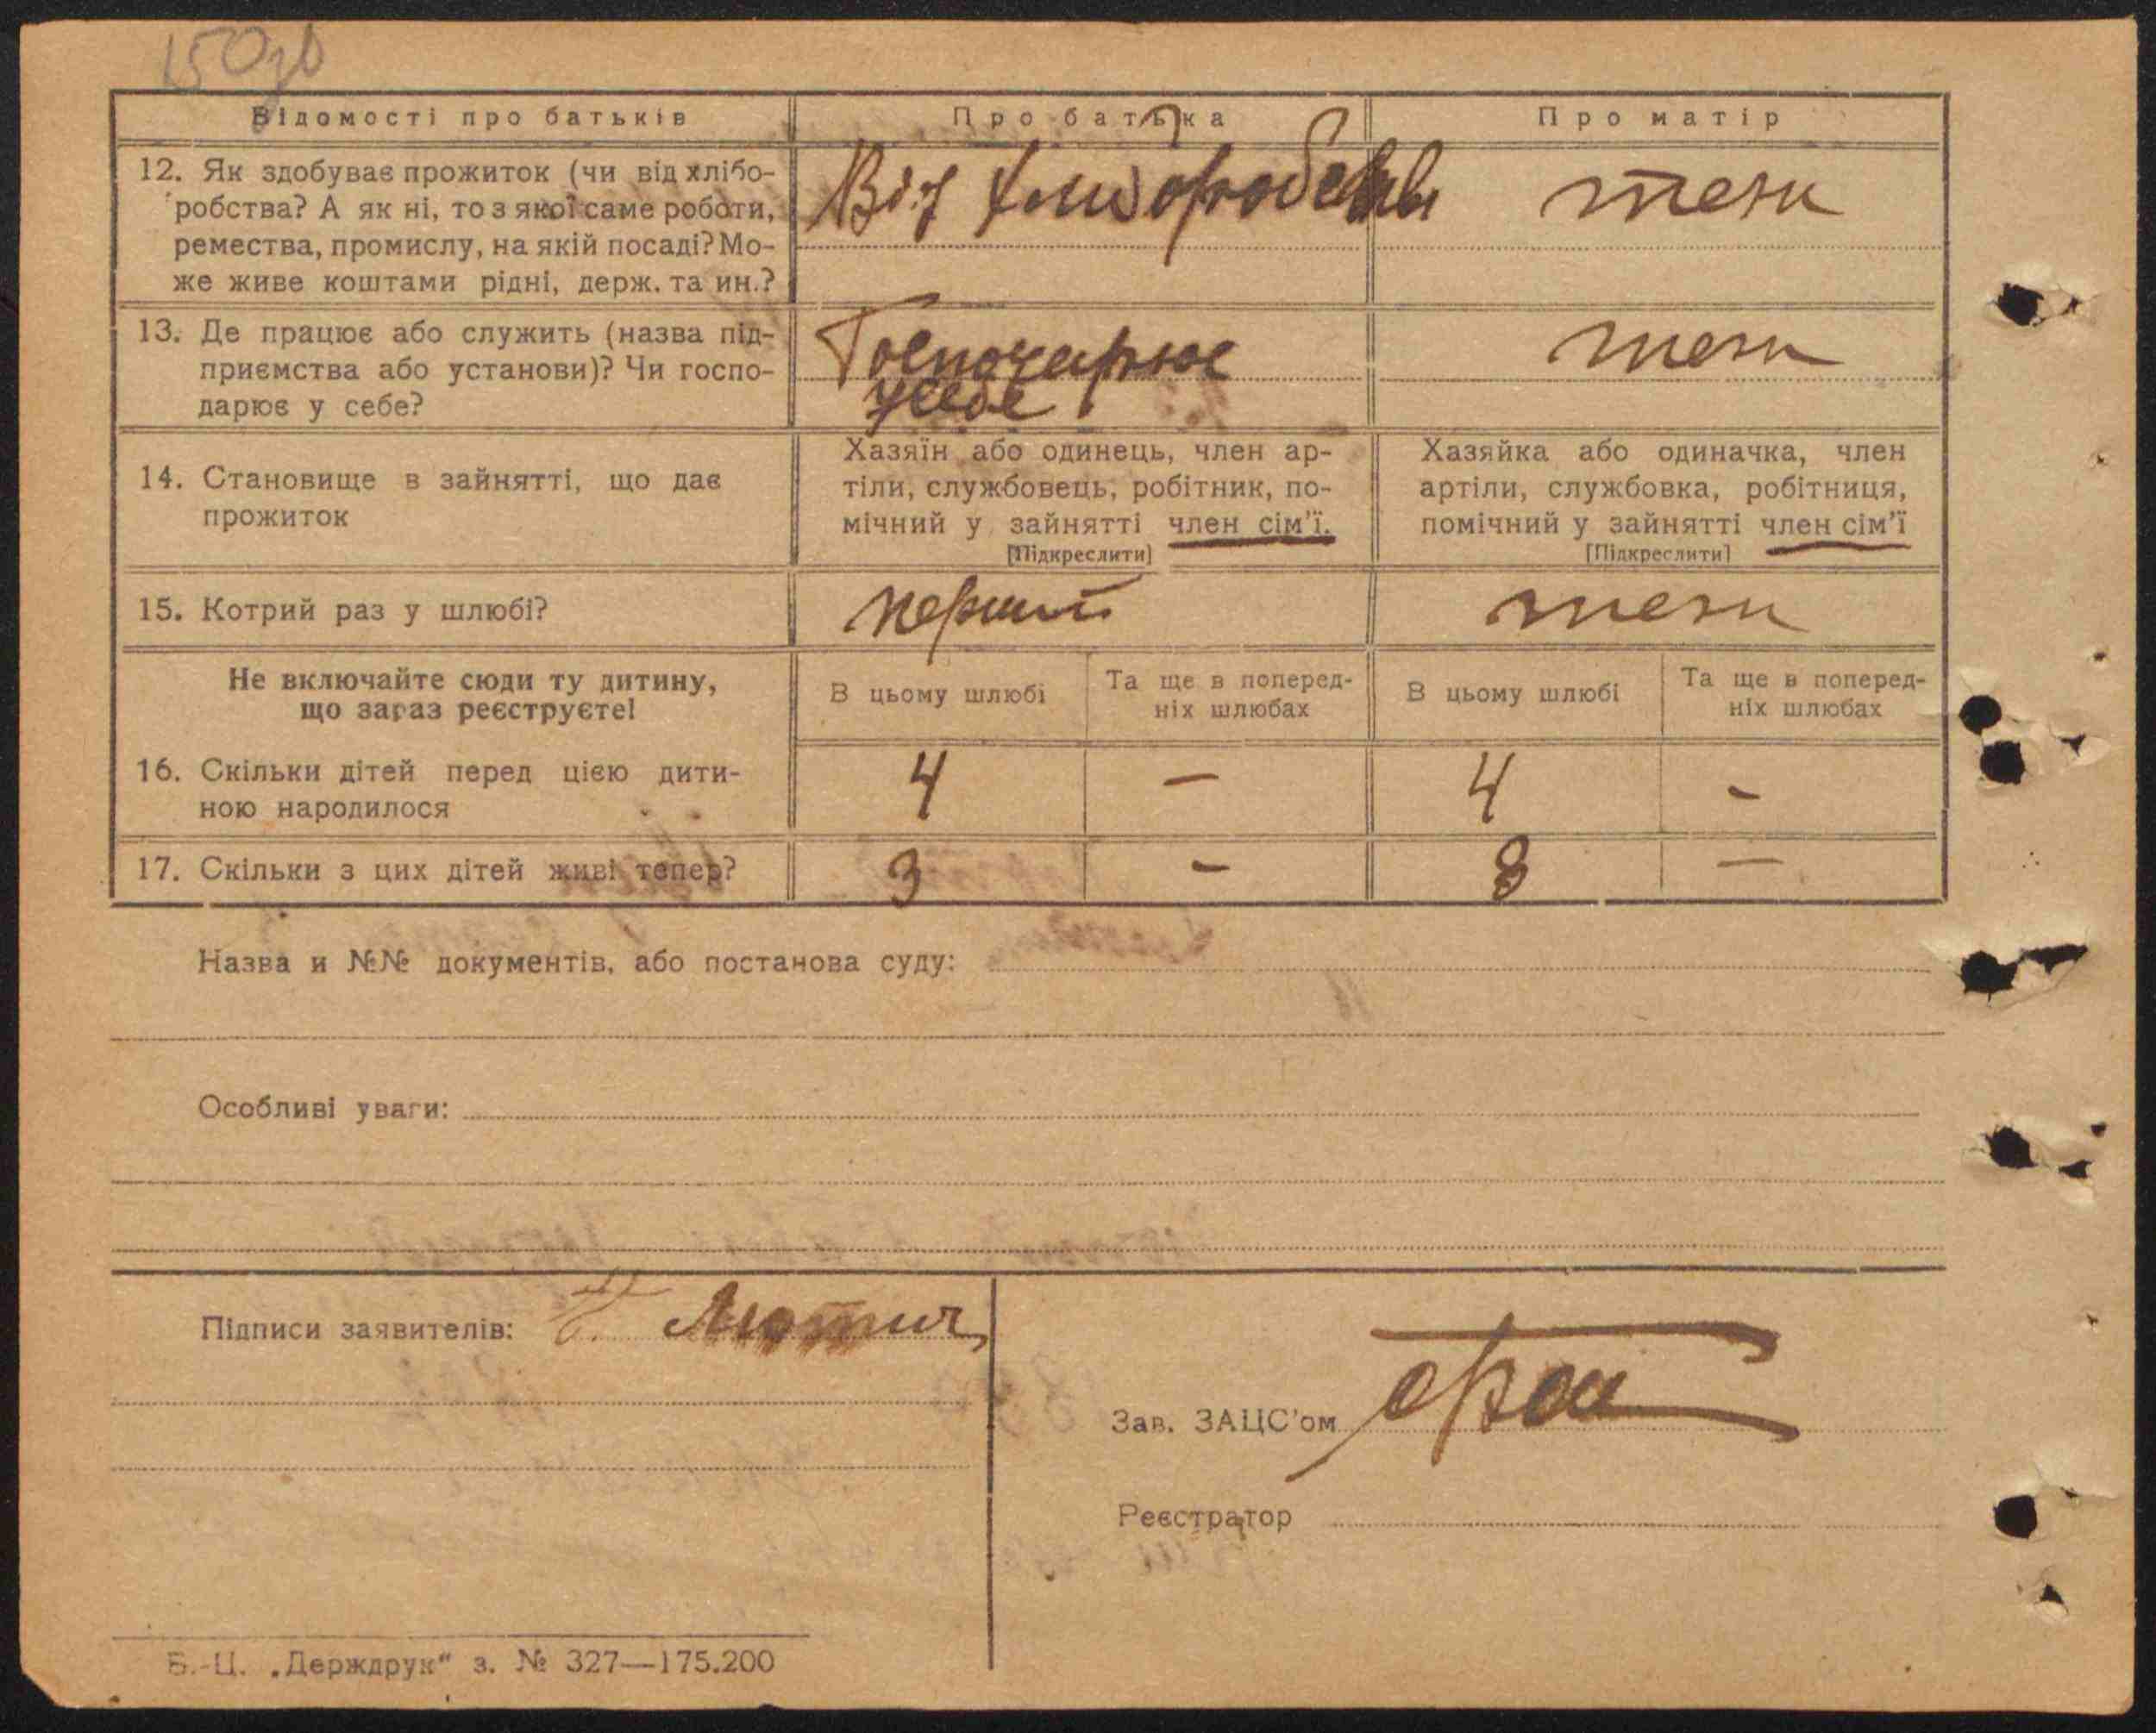 150зв
Відомості про батьків
Про батька
Про матір
12. Як здобуває прожиток (чи від хлібо-
робства? А як ні, то з якої саме роботи,
ремества, промислу, на якій посаді? Мо-
же живе коштами рідні, держ. та ин.?
Від
теж
13. Де працює або служить (назва під-
приємства або установи)? Чи госпо-
дарює у себе?
Господарює
у себе
теж
14. Становище в зайнятті, що дає
прожиток
Хазяїн або одинець, член ар-
тіли, службовець, робітник, по-
мічний у зайнятті член сім'ї.
[Підкреслити]
Хазяйка або одиначка, член
артіли, службовка, робітниця,
помічний у зайнятті член сім'ї
[Підкреслити]
15. Котрий раз у шлюбі?
перший
теж
Не включайте сюди ту дитину,
що зараз реєструєте!
В цьому шлюбі
Та ще в поперед-
ніх шлюбах
В цьому шлюбі
Та ще в поперед-
ніх шлюбах
16. Скільки дітей перед цією дити-
ною народилося
4 — 4 -
17. Скільки з цих дітей живі тепер?
3 - 3 —
Назва и №№ документів, або постанова суду:
Особливі уваги:
Підписи заявителів: Лютич
Зав. ЗАЦС'ом
Реєстратор
Б.-Ц. „Держдрук" з. № 327—175.200